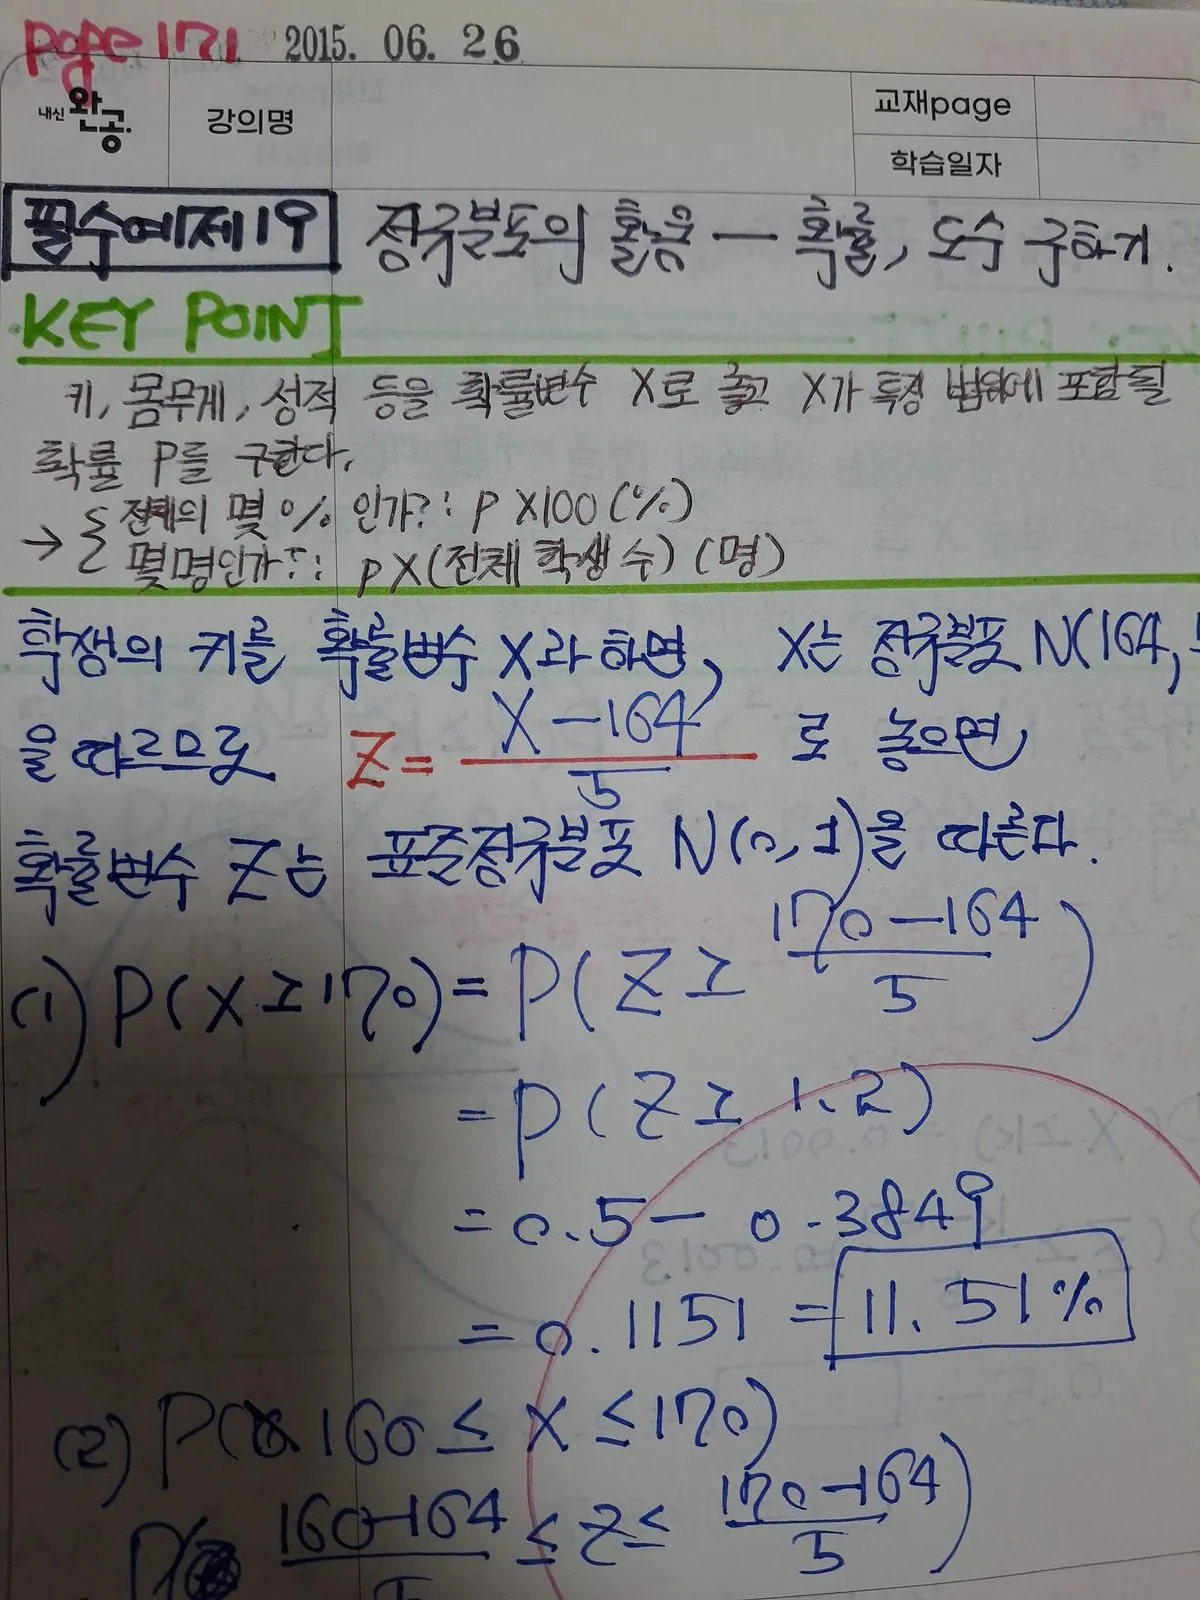 page 171 2015. 06. 26
내신 완공. 강의명 교재page
학습일자
필수예제19 정규분포의 활용 — 확률, 도수 구하기.
KEY POINT
키, 몸무게, 성적 등을 확률변수 X로 놓고 X가 특정 범위에 포함될
확률 P를 구한다.
→ { 전체의 몇 % 인가?: P X100(%)
몇명인가?: p X(전체 학생 수) (명)
학생의 키를 확률변수 X라 하면, X는 정규분포 N(164,
을 따르므로 Z = (X-164)/5 로 놓으면
확률변수 Z는 표준정규분포 N(0, 1)을 따른다.
(1) P(X≥170) = P(Z ≥ (170-164)/5)
= P(Z ≥ 1.2)
= 0.5 - 0.3849
= 0.1151 = 11.51%
(2) P(160 ≤ X ≤ 170)
P( (160-164)/5 ≤ Z ≤ (170-164)/5 )